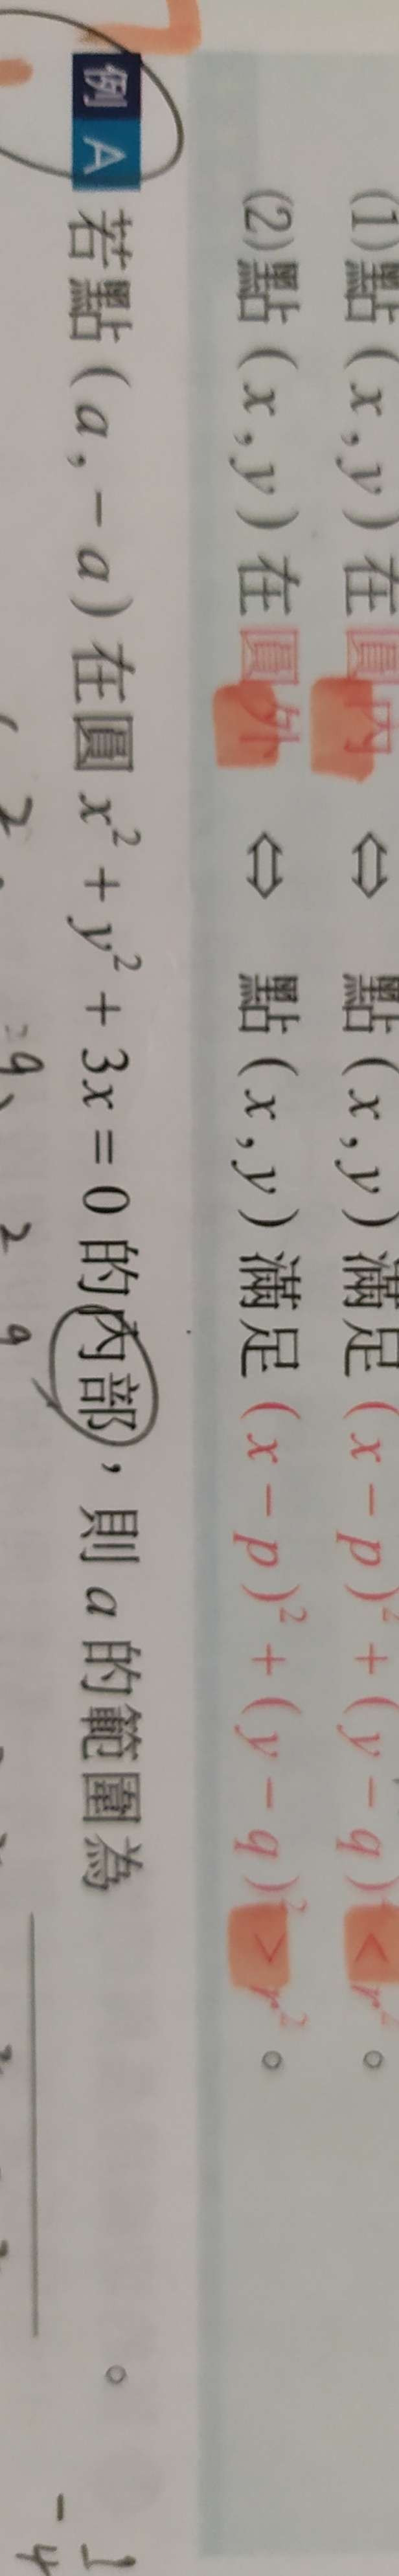 (1)點(x,y)在圓內 ⇔ 點(x,y)滿足(x-p)²+(y-q)²<r²。
(2)點(x,y)在圓外 ⇔ 點(x,y)滿足(x-p)²+(y-q)²>r²。
例A 若點(a,-a)在圓x²+y²+3x=0的內部,則a的範圍為 。